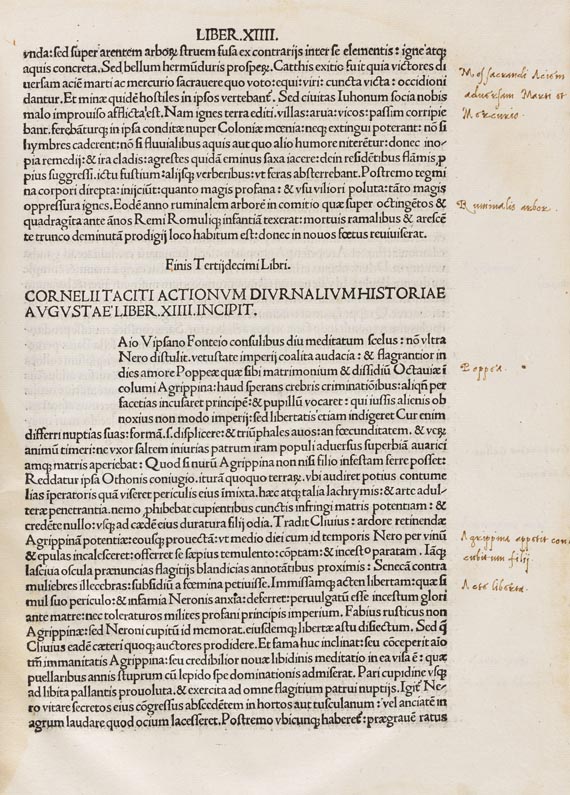 LIBER.XIIII.
vnda: sed super arentem arborꝝ struem fusa ex contrarijs inter se elementis: igne atqꝫ
aquis concreta. Sed bellum hermūduris prosperꝝ. Catthis exitio fuit quia victores di
uersam aciē marti ac mercurio sacrauere quo voto: equi: viri: cuncta victa: occidioni
dantur. Et minæ quidē hostiles in ipsos vertebant̃. Sed ciuitas Iuhonum socia nobis
malo improuiso afflicta est. Nam ignes terra editi. villas: arua: vicos: passim corripie
bant. ferebāturqꝫ in ipsa conditæ nuper Coloniæ mœnia: neqꝫ extingui poterant: nō si
hymbres caderent: nō si fluuialibus aquis aut quo alio humore niterētur: donec ino-
pia remedij: & ira cladis: agrestes quidā eminus saxa iacere: dein residētibus flāmis, ꝓ
pius suggressi. ictu fustium: alijsqꝫ verberibus: vt feras absterrebant. Postremo tegmi
na corpori direpta: inijciūt: quanto magis profana: & vsu viliori poluta: tāto magis
oppressura ignes. Eodē anno ruminalem arborē in comitio quæ super octingētos &
quadragīta ante ānos Remi Romuliqꝫ infantiā texerat: mortuis ramalibus & arescē
te trunco deminutā prodigij loco habitum est: donec in nouos fœtus reuiuiserat.
Finis Tertijdecimi Libri.
CORNELII TACITI ACTIONVM DIVRNALIVM HISTORIAE
AVGVSTAE LIBER.XIIII.INCIPIT.
Aio Vipsano Fonteio consulibus diu meditatum scelus: nō vltra
Nero distulit. vetustate imperij coalita audacia: & flagrantior in
dies amore Poppeæ quæ sibi matrimonium & dissidiū Octauiæ ī
columi Agrippina: haud sperans crebris criminatiōibus: aliqñ per
facetias incusaret principē: & pupillū vocaret: qui iussis alienis ob
noxius non modo imperij: sed libertatis etiam indigeret Cur enim
differri nuptias suas: formā.s. displicere: & triūphales auos: an fœcunditatem. & verꝝ
animū timeri: ne vxor saltem iniurias patrum iram populi aduersus superbiā auarici
amqꝫ matris aperiebat: Quod si nurū Agrippina non nisi filio infestam ferre posset:
Reddatur ipsa Othonis coniugio. iturā quoquo terraꝝ. vbi audiret potius contume
lias īperatoris quā viseret periculis eius imixta. hæc atqꝫ talia lachrymis: & arte adul-
teræ penetrantia. nemo ꝓhibebat cupientibus cunctis infringi matris potentiam: &
credēte nullo: vsqꝫ ad cædē eius duratura filij odia. Tradit Cluius: ardore retinendæ
Agrippinā potentiæ: eousqꝫ prouectā: vt medio diei cum id temporis Nero per vinū
& epulas incalsceret: offerret se sæpius temulento: cōptam: & incesto paratam. Iāqꝫ
lasciua oscula prænuncias flagitijs blandicias annotātibus proximis: Senecā contra
muliebres illecebras: subsidiū a fœmina petiuisse. Immissamqꝫ acten libertam: quæ si
mul suo periculo: & infamia Neronis anxia: deferret: peruulgatū esse incestum glori
ante matre: nec toleraturos milites profani principis imperium. Fabius rusticus non
Agrippinæ: sed Neroni cupitū id memorat. eiusdemqꝫ libertæ astu disiectum. Sed q̃
Cluius eadē cæteri quoqꝫ auctores prodidere. Et fama huc inclinat: seu cōceperit aio
tm̄ immanitatis Agrippina: seu credibilior nouæ libidinis meditatio in ea visa ē: quæ
puellaribus annis stuprum cū lepido spe dominationis admiserat. Pari cupidine vsqꝫ
ad libita pallantis prouoluta: & exercita ad omne flagitium patrui nuptijs. Igit̃ Ne-
ro vitare secretos eius cōgressus abscedētem in hortos aut tusculanum: vel anciatē in
agrum laudare quod ocium lacesseret. Postremo vbicunqꝫ haberet̃: prægrauē ratus
Mos sacrandi Aciem
aduersam Marti et
Mercurio.
Ruminalis arbor.
Poppea.
Agrippina appetit con
cubitum filij.
Acte liberta.